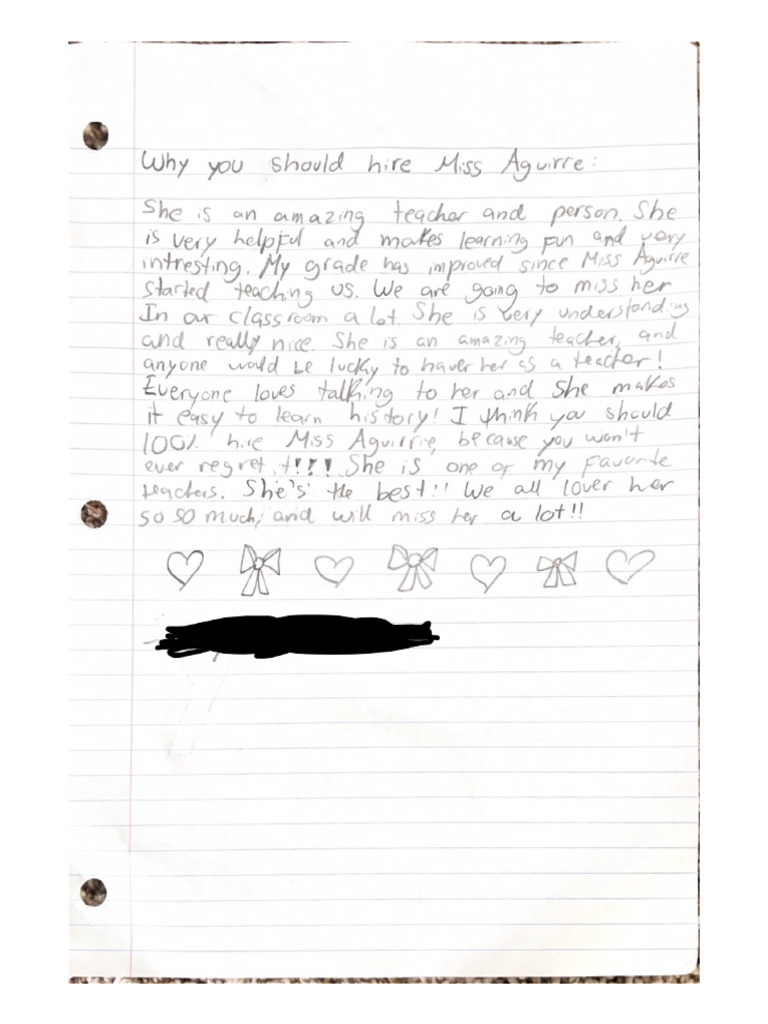 Why you should hire Miss Aguirre:
She is an amazing teacher and person. She
is very helpful and makes learning fun and very
intresting. My grade has improved since Miss Aguirre
started teaching us. We are going to miss her
In our classroom a lot. She is very understanding
and really nice. She is an amazing teacher, and
anyone would be lucky to haver her as a teacher!
Everyone loves talking to her and She makes
it easy to learn history! I think you should
100% hire Miss Aguirrie, because you won't
ever regret it!!! She is one of my favorite
teachers. She's the best!! We all lover her
so so much, and will miss her a lot!!